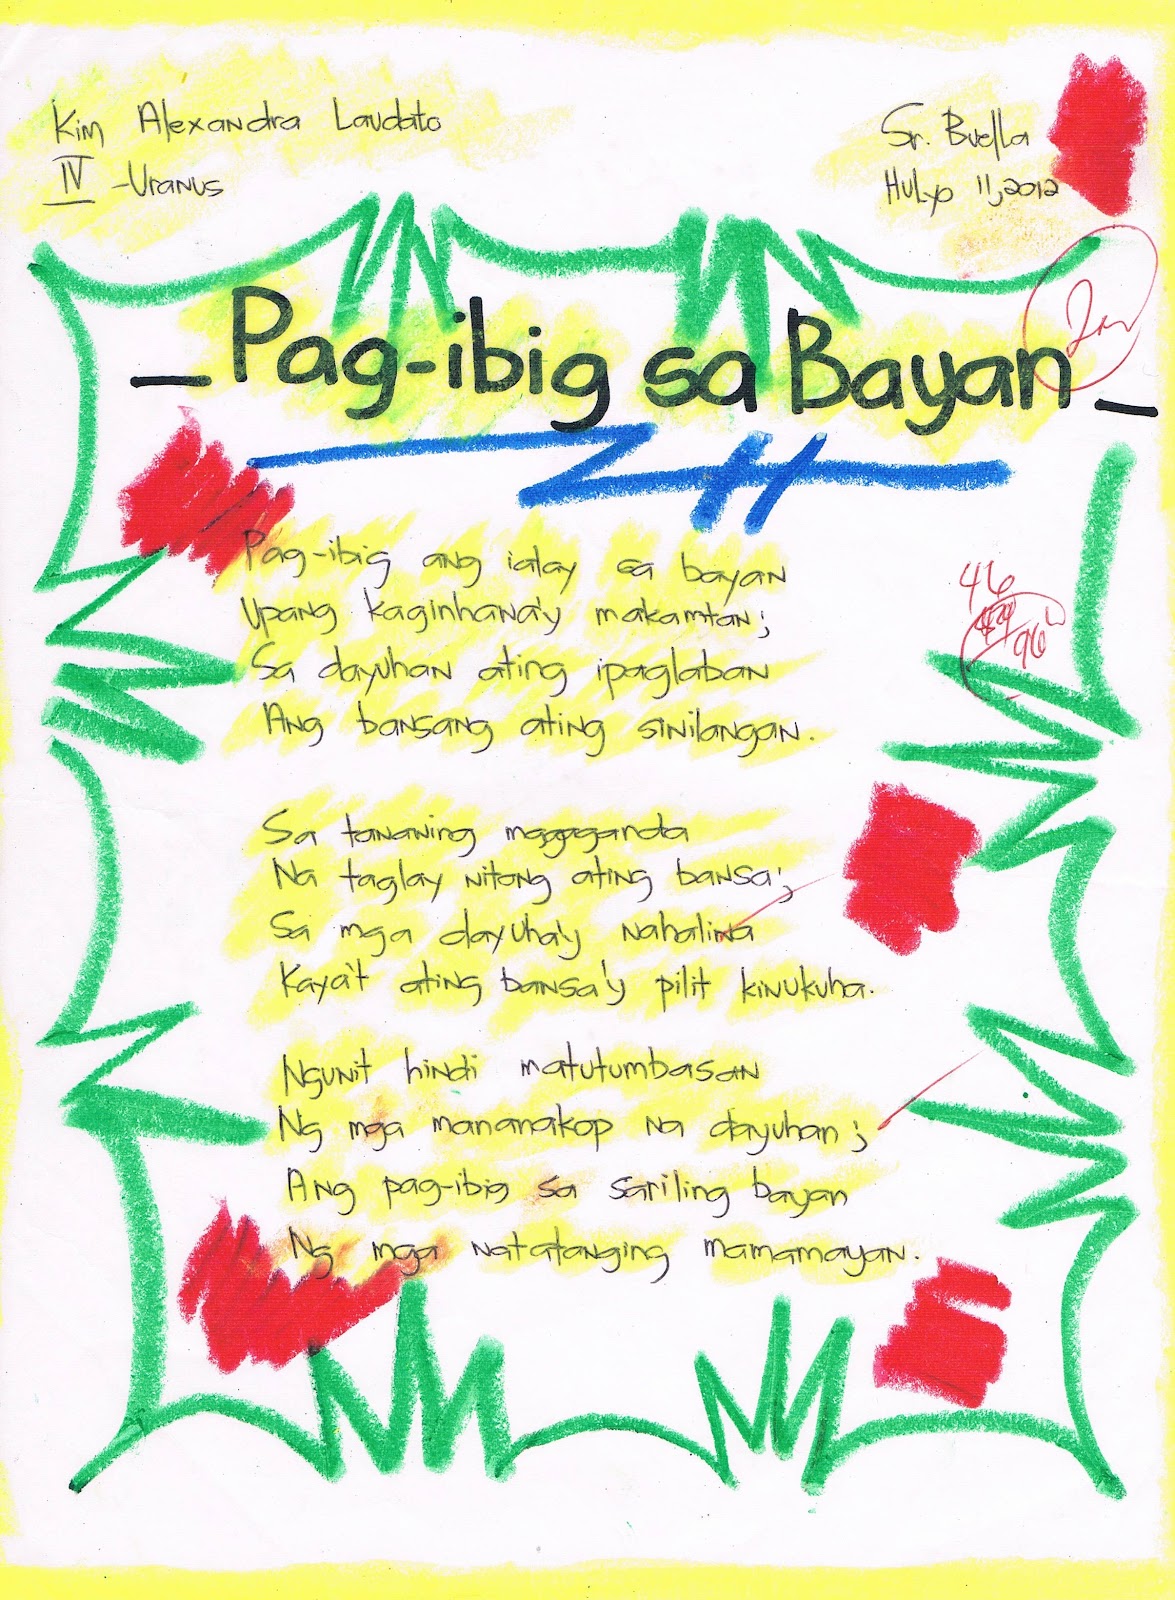 Kim Alexandra Laudato
IV -Uranus
Sr. Buella
Hulyo 11, 2012
_Pag-ibig sa Bayan_
Pag-ibig ang ialay sa bayan
Upang kaginhawa'y makamtan;
Sa dayuhan ating ipaglaban
Ang bansang ating sinilangan.
46
96
Sa tanawing magaganda
Na taglay nitong ating bansa;
Sa mga dayuha'y nahalina
Kaya't ating bansa'y pilit kinukuha.
Ngunit hindi matutumbasan
Ng mga mananakop na dayuhan;
Ang pag-ibig sa sariling bayan
Ng mga natatanging mamamayan.